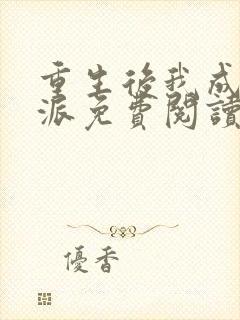 重生後我成
派免費閱讀
優香